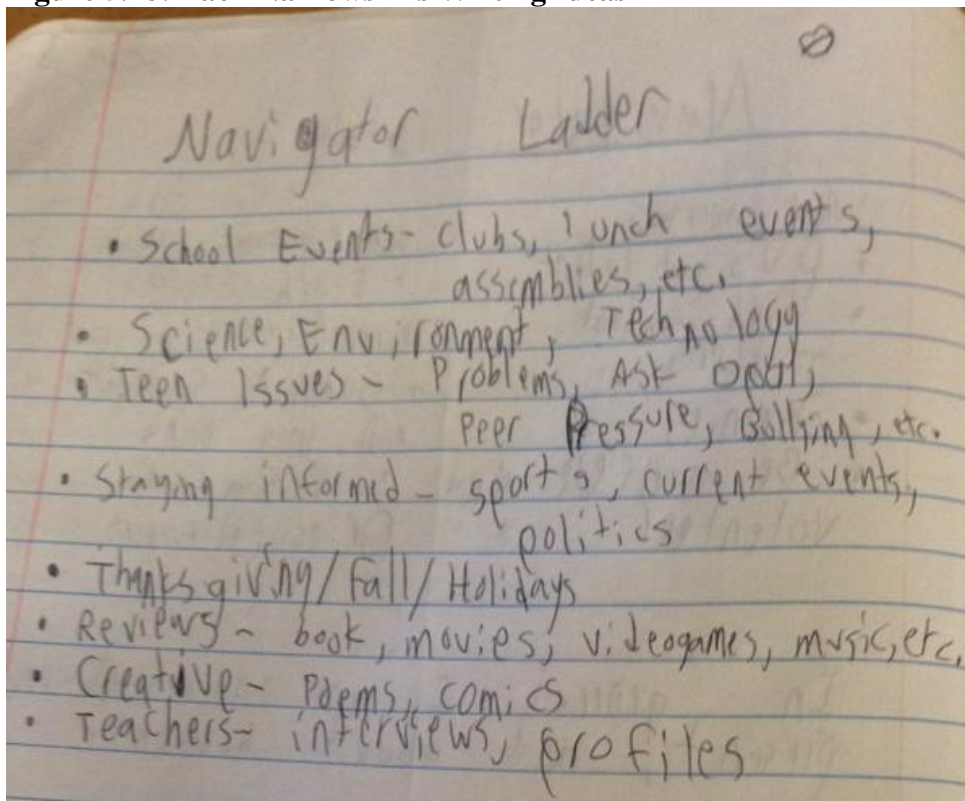 Navigator Ladder
• School Events- clubs, lunch events,
assemblies, etc.
• Science, Environment, Technology
• Teen Issues- Problems, Ask Opal,
Peer Pressure, Bullying, etc.
• Staying informed- sports, current events,
politics
• Thanksgiving/Fall/Holidays
• Reviews- book, movies, videogames, music, etc.
• Creative- Poems, comics
• Teachers- interviews, profiles